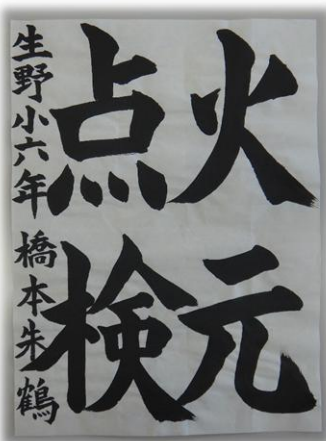 火元
点検
生野小六年 橋本朱鶴